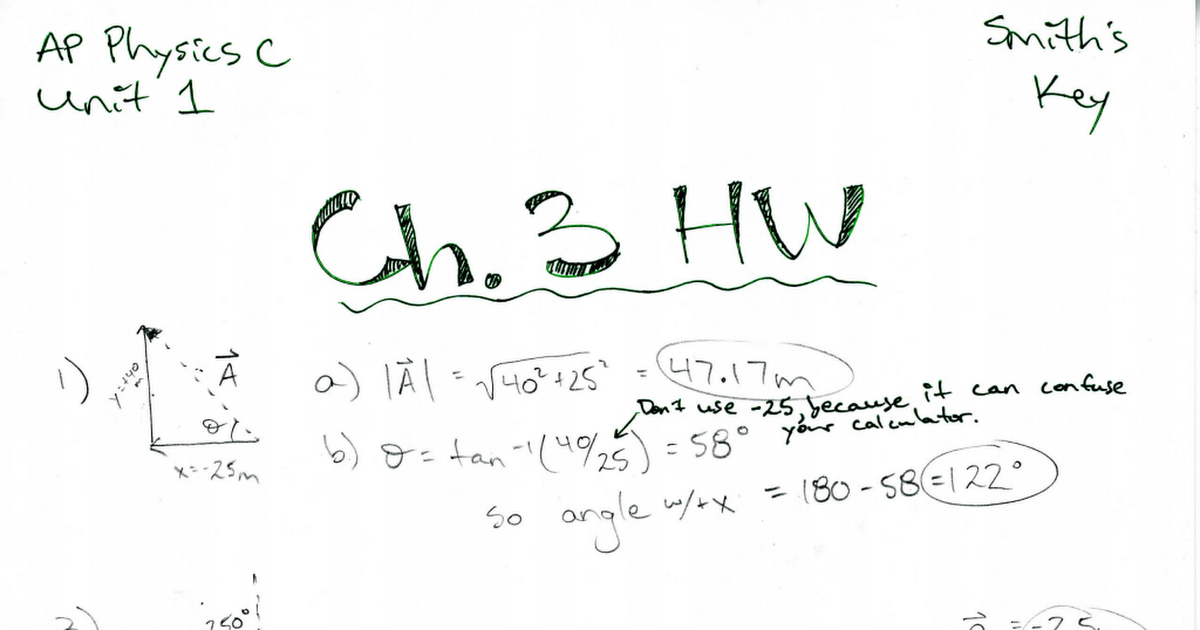 AP Physics C
Unit 1
Smith's
Key
Ch. 3 HW
1)
y=+40 m
A
θ
x=-25m
a) |A| = √40²+25² = 47.17m
Don't use -25, because it can confuse
your calculator.
b) θ = tan⁻¹(40/25) = 58°
so angle w/+x = 180-58 = 122°
250°